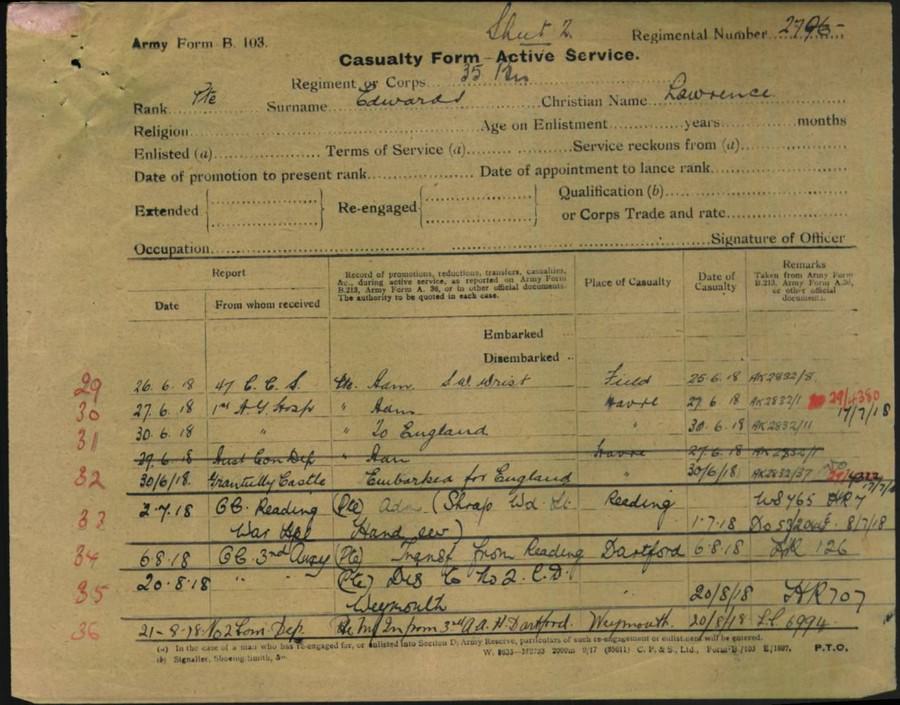 Sheet 2.
Army Form B. 103. Regimental Number 2796
Casualty Form—Active Service.
Regiment or Corps 35 Bn
Rank Pte Surname Edwards Christian Name Lawrence
Religion Age on Enlistment years months
Enlisted (a) Terms of Service (a) Service reckons from (a)
Date of promotion to present rank Date of appointment to lance rank
Extended Re-engaged Qualification (b)
or Corps Trade and rate
Occupation Signature of Officer
Report Record of promotions, reductions, transfers, casualties, &c., during active service, as reported on Army Form B.213, Army Form A. 36, or in other official documents. The authority to be quoted in each case. Place of Casualty Date of Casualty Remarks Taken from Army Form B.213, Army Form A.36, or other official documents.
Date From whom received
Embarked
Disembarked
29 26.6.18 47 C.C.S. Adm S.W. Wrist Field 25.6.18 AK2832/8
30 27.6.18 1st A.G. Hosp " Adm Havre 27.6.18 AK2832/1 29/4380
17/7/18
31 30.6.18 " " To England " 30.6.18 AK2832/11
29.6.18 Aust Con Dep " Havre 27.6.18 AK2832/1
32 30/6/18. Grantully Castle "Embarked for England " 30/6/18 AK2832/37
33 2-7-18 CC. Reading (Pte) Adm (Shrap Wd. Lt. Reading W8465 HR7
War Hpl Hand sev) 1-7-18 8/7/18
34 6.8.18 CC. 3rd Auxy (Pte) Transf from Reading Dartford 6.8.18 HR 126
35 20.8.18 " " (Pte) Dis to No 2 C.D.
Weymouth " 20/8/18 HR707
36 21-8-18 No 2 Com. Dep. M/In from 3rd A.A.H. Dartford. Weymouth. 20/8/18 6994
(a) In the case of a man who has re-engaged for, or enlisted into Section D, Army Reserve, particulars of such re-engagement or enlistment will be entered.
(b) Signaller, Shoeing Smith, &c. 2000m 9/17 C. P. & S., Ltd., Form B/103 E/1897. P.T.O.